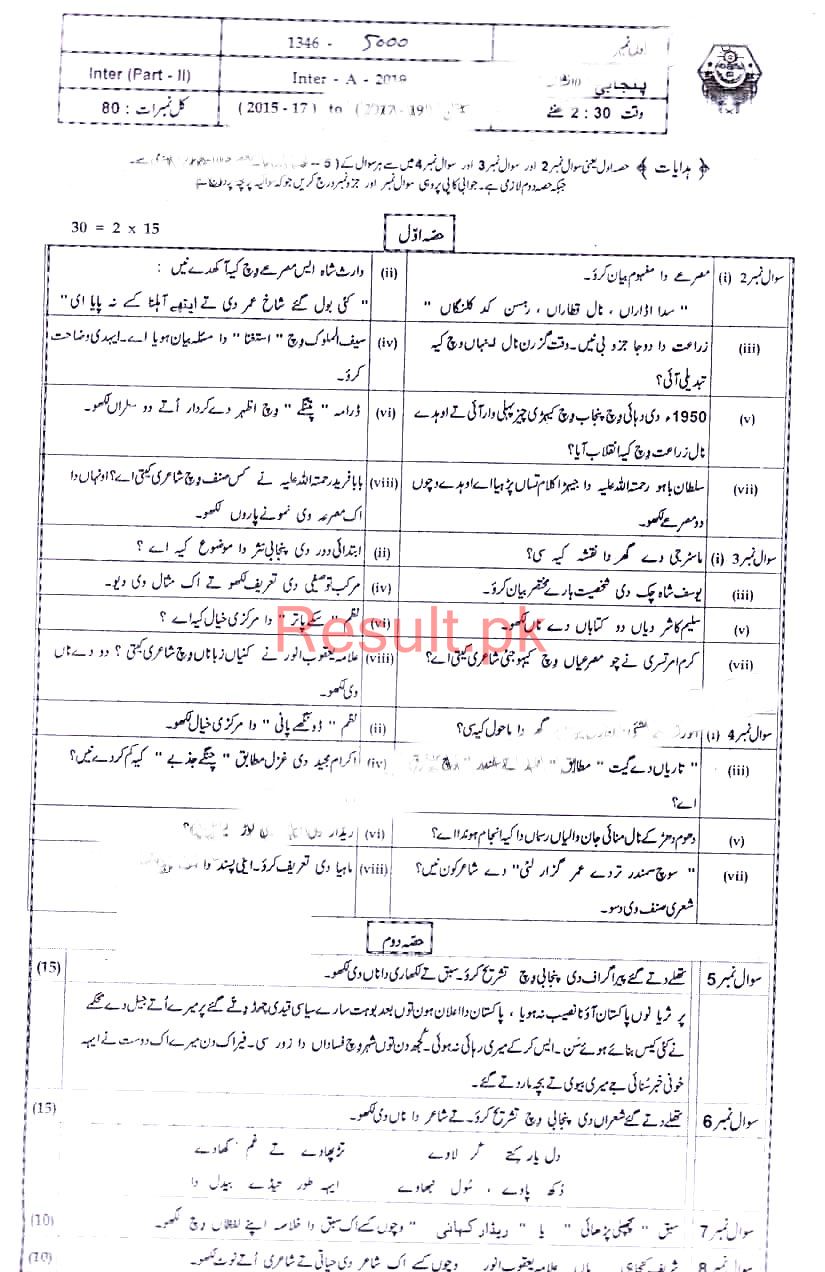 1346 - 5000
Inter (Part - II) Inter - A - 2018 پنجابی
کل نمبرات : 80 (2015 - 17) to وقت 2 : 30 گھنٹے
﴿ ہدایات ﴾ حصہ اول یعنی سوال نمبر 2 اور سوال نمبر 3 اور سوال نمبر 4 میں سے ہر سوال کے
جبکہ حصہ دوم لازمی ہے۔ جوابی کاپی پر وہی سوال نمبر اور جزو نمبر درج کریں جو کہ سوالیہ پرچہ پر
حصہ اوّل
30 = 2 x 15
سوال نمبر 2 (i) مصرعے دا مفہوم بیان کرؤ۔
" سدا اڈاراں ، نال قطاراں ، رہسن کد کلنگاں "
(ii) وارث شاہ ایس مصرعے وچ کیہ آکھدے نیں :
" کئی بول گئے شاخ عمر دی تے ایتھے آہلنا کسے نہ پایا ای "
(iii) زراعت دا دوجا جزو بی نیں۔ وقت گزرن نال ایہناں وچ کیہ
تبدیلی آئی؟
(iv) سیف الملوک وچ " استغنا " دا مسئلہ بیان ہویا اے۔ ایہدی وضاحت
کرؤ۔
(v) 1950ء دی دہائی وچ پنجاب وچ کیہڑی چیز پہلی وار آئی تے اوہدے
نال زراعت وچ کیہ انقلاب آیا؟
(vi) ڈرامہ " پتنگے " وچ اظہر دے کردار اُتے دو سطراں لکھو۔
(vii) سلطان باہو رحمتہ اللہ علیہ دا جیہڑا کلام تساں پڑھیا اے اوہدے وچوں
دو مصرعے لکھو۔
(viii) بابا فرید رحمتہ اللہ علیہ نے کس صنف وچ شاعری کیتی اے؟ اونہاں دا
اک مصرعہ وی نمونے پاروں لکھو۔
سوال نمبر 3 (i) ماسٹر جی دے گھر دا نقشہ کیہ سی؟
(ii) ابتدائی دور دی پنجابی نثر دا موضوع کیہ اے ؟
(iii) یوسف شاہ چک دی شخصیت بارے مختصر بیان کرؤ۔
(iv) مرکب توصیفی دی تعریف لکھو تے اک مثال وی دیو۔
(v) سلیم کاشر دیاں دو کتاباں دے ناں لکھو۔
(vi) نظم " سکے پاتر " دا مرکزی خیال کیہ اے ؟
Result.pk
(vii) کرم امرتسری نے چو مصرعیاں وچ کیہو جئی شاعری کیتی اے؟
(viii) علامہ یعقوب انور نے کنیاں زباناں وچ شاعری کیتی ؟ دو دے ناں
وی لکھو۔
سوال نمبر 4 (i) گھر دا ماحول کیہ سی؟
(ii) نظم " ڈونگھے پانی " دا مرکزی خیال لکھو۔
(iii) " تاریاں دے گیت " مطابق
اے؟
(iv) اکرام مجید دی غزل مطابق " چنگے جذبے " کیہ کم کردے نیں؟
(v) دھوم دھڑکے نال منائی جان والیاں رسماں دا کیہ انجام ہوندا اے؟
(vi) ریڈار
(vii) " سوچ سمندر تردے عمر گزار لئی" دے شاعر کون نیں؟
شعری صنف وی دسو۔
(viii) ماہیا دی تعریف کرؤ۔ اپنی پسند دا
حصہ دوم
سوال نمبر 5 تھلے دتے گئے پیراگراف دی پنجابی وچ تشریح کرؤ۔ سبق تے لکھاری دا ناں وی لکھو۔ (15)
پر ثریا نوں پاکستان آؤنا نصیب نہ ہویا ، پاکستان دا اعلان ہون توں بعد بوہت سارے سیاسی قیدی چھڈ دتے گئے پر میرے اُتے جیل دے محکمے
نے کئی کیس بنائے ہوئے سَن۔ ایس کر کے میری رہائی نہ ہوئی۔ کُجھ دن توں شہر وچ فساداں دا زور سی۔ فیر اک دن میرے اک دوست نے ایہہ
خونی خبر سُنائی جے میری بیوی تے بچہ مار دتے گئے۔
سوال نمبر 6 تھلے دتے گئے شعراں دی پنجابی وچ تشریح کرؤ۔ تے شاعر دا ناں وی لکھو۔ (15)
دل یار کیتے کُر لاوے تڑپھاوے تے غم کھاوے
دُکھ پاوے ، سُول نبھاوے ایہہ طور تیڈے بیدل دا
سوال نمبر 7 سبق " پچھلی پڑھائی " یا " ریڈار کہانی " وچوں کسے اک سبق دا خلاصہ اپنے لفظاں وچ لکھو۔ (10)
سوال نمبر 8 شریف کنجاہی یاں علامہ یعقوب انور وچوں کسے اک شاعر دی حیاتی تے شاعری اُتے نوٹ لکھو۔ (10)